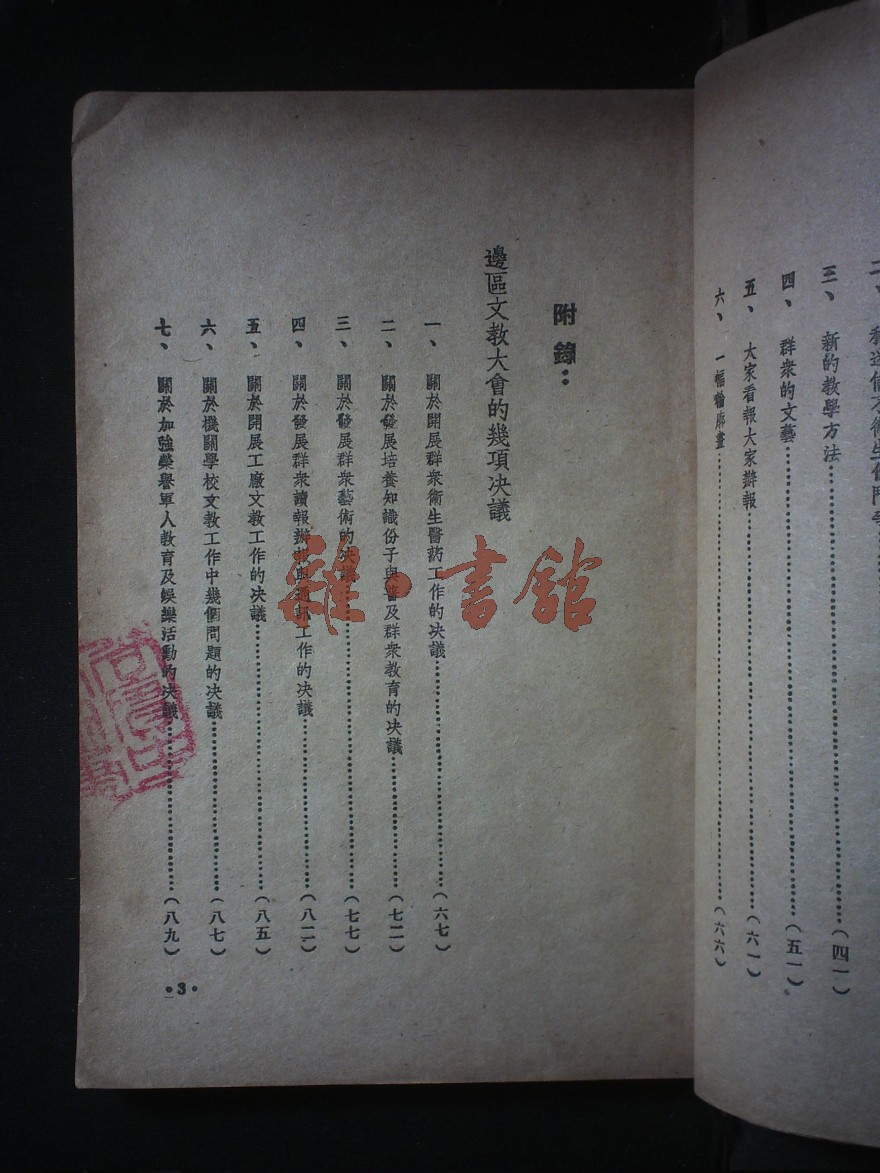 三、新的教學方法……(四一)
四、群衆的文藝……(五一)
五、大家看報大家辦報……(六一)
六、一幅輪廓畫……(六六)
附錄：
邊區文教大會的幾項决議
一、關於開展群衆衛生醫葯工作的决議……(六七)
二、關於發展培養知識份子與普及群衆教育的决議……(七二)
三、關於發展群衆藝術的决議……(七七)
四、關於發展群衆讀報辦報與通訊工作的决議……(八二)
五、關於開展工廠文教工作的决議……(八五)
六、關於機關學校文教工作中幾個問題的决議……(八七)
七、關於加強榮譽軍人教育及娛樂活動的决議……(八九)
•3•
雜·書館